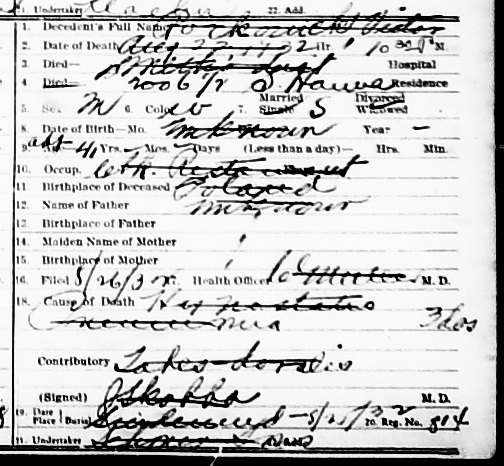 11. Undertaker 22. Add.
1. Decedent's Full Name Victor
2. Date of Death Aug 22 1932 Hr. 10 30 P M.
3. Died— Smith's Hospital
4. Died— 2006 1/2 S Hanna Residence
5. Sex M 6. Color W 7. Married Single S Divorced Widowed
8. Date of Birth—Mo. unknown Year —
9. abt 41 Yrs. Mos. Days (Less than a day)— Hrs. Min.
10. Occup.
11. Birthplace of Deceased Poland
12. Name of Father unknown
13. Birthplace of Father
14. Maiden Name of Mother
15. Birthplace of Mother
16. Filed 8/26/32 17. Health Officer M. D.
18. Cause of Death Hypostatic
Pneumonia 3 dos
Contributory Tabes dorsalis
(Signed) M. D.
19. Date Place (Burial) 20. Reg. No. 814
21. Undertaker